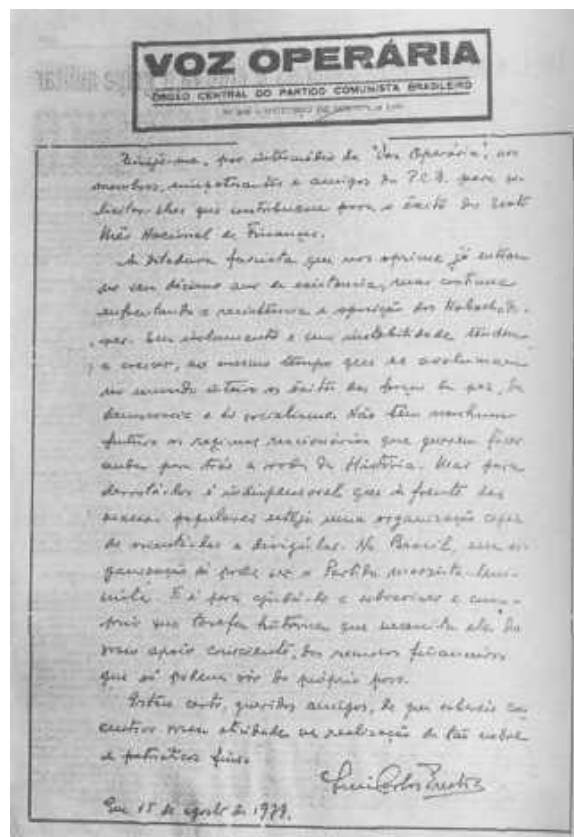 VOZ OPERÁRIA
ÓRGÃO CENTRAL DO PARTIDO COMUNISTA BRASILEIRO
Dirijo-me, por intermédio de "Voz Operária", aos
membros, simpatizantes e amigos do P.C.B. para so-
licitar-lhes que contribuam para o êxito do
Mês Nacional de Finanças.
A ditadura fascista que nos oprime já entrou
no seu décimo ano de existência, mas continua
enfrentando a resistência e oposição dos trabalhado-
res. Seu isolamento e sua instabilidade tendem
a crescer, ao mesmo tempo que se avolumam
no mundo inteiro os êxitos das forças da paz, da
democracia e do socialismo. Não têm nenhum
futuro os regimes reacionários que querem fazer
andar para trás a roda da História. Mas para
derrotá-los é indispensável que à frente das
massas populares esteja uma organização capaz
de orientá-las e dirigí-las. No Brasil, essa or-
ganização só pode ser o Partido marxista-leni-
nista. E é para ajudá-lo a sobreviver e cum-
prir sua tarefa histórica que necessita ele do
vosso apoio consciente, dos recursos financeiros
que só podem vir do próprio povo.
Estou certo, queridos amigos, de que sabereis
vossa atividade na realização de tão nobre
e patrióticos fins.
Luiz Carlos Prestes
Em 15 de agosto de